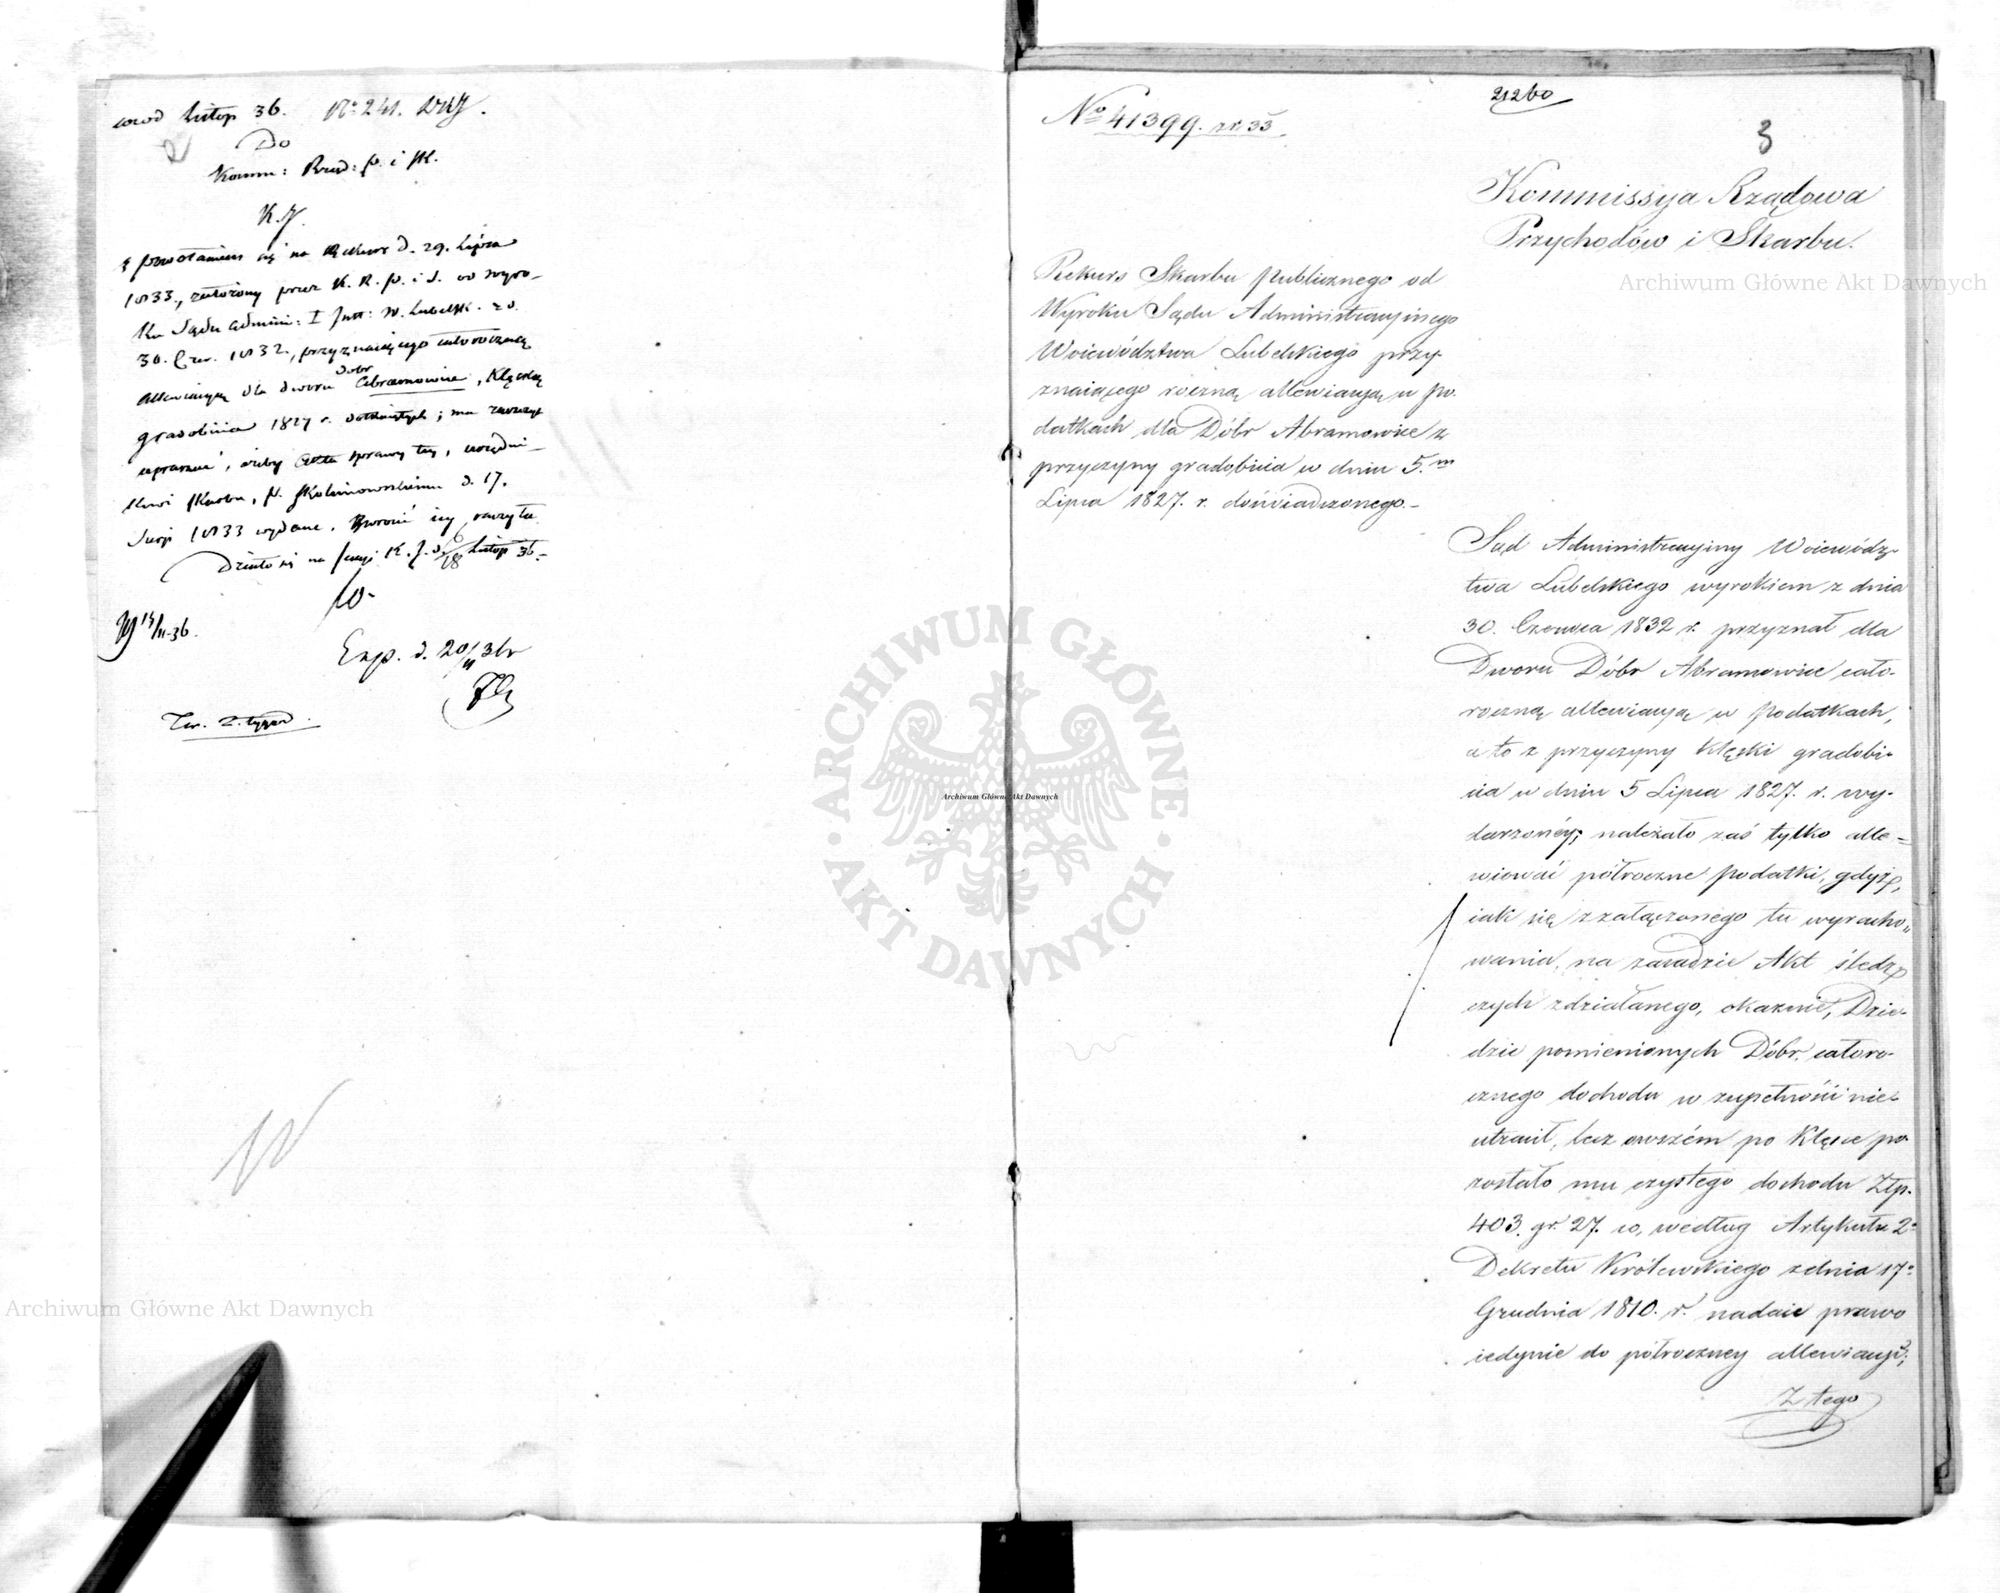 Listop 36. No 241.
Do
Komm: Rząd: p. i sk.
K. J.
z powołaniem się na Rekurs d. 29. Lipca
1833., założony przez K. R. p. i S. od wyro-
ku Sądu admini: I Inst: W. Lubelsk. z d.
30. Czer. 1832., przyznaiącego całoroczną
allewiacyą dla dworu dobr Abramowice, klęską
gradobicia 1827 r. dotkniętych; ma zaszczyt
upraszać, ażeby akta sprawy tey, urzędni-
kowi skarbu, p. Skolimowskiemu d. 17.
1833 wydane, zwrócić iey raczyła.
Działo się na sessyi K. J. d. 6/18 Listop 36.
14/11 36.
Exp. d. 20/11 36 r
Ter. 2. tygod.
No 41399. r. 33.
21260
3
Kommissyja Rządowa
Przychodów i Skarbu.
Rekurs Skarbu publicznego od
Wyroku Sądu Administracyjnego
Woiewództwa Lubelskiego przy-
znaiącego roczną allewiacyą w po-
datkach dla Dóbr Abramowice z
przyczyny gradobicia w dniu 5.m
Lipca 1827. r. doświadczonego.-
Sąd Administracyjny Woiewódz-
twa Lubelskiego wyrokiem z dnia
30. Czerwca 1832 r. przyznał dla
Dworu Dóbr Abramowice cało-
roczną allewiacyą w podatkach,
a to z przyczyny klęski gradobi-
cia w dniu 5 Lipca 1827. r. wy-
darzonéy; należało zaś tylko alle=
wiować półroczne podatki, gdyż,
iak się z załączonego tu wyracho-
wania, na zasadzie Akt śledz-
czych zdziałanego, okazuie, Dzie-
dzic pomienionych Dóbr, całoro-
cznego dochodu w zupełności nie-
utracił, lecz owszém po klęsce po-
zostało mu czystego dochodu Złp.
403. gr. 27. co, według Artykułu 2o
Dekretu Królewskiego z dnia 17o
Grudnia 1810. r. nadaie prawo
iedynie do półroczney allewiacyi;
Z tego
Archiwum Główne Akt Dawnych
Archiwum Główne Akt Dawnych
Archiwum Główne Akt Dawnych
ARCHIWUM GŁÓWNE AKT DAWNYCH